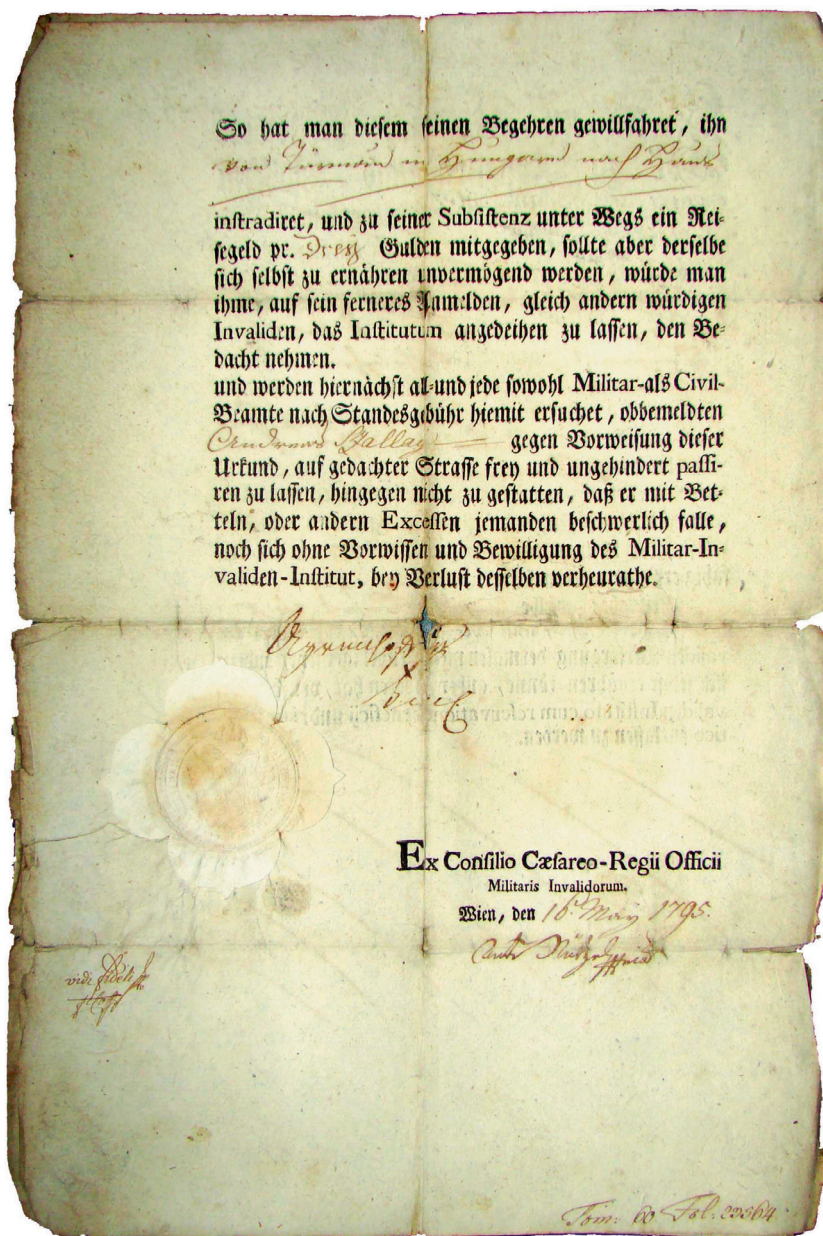 So hat man diesem seinen Begehren gewillfahret, ihn
von in Hungarn nach Haus
instradiret, und zu seiner Subsistenz unter Wegs ein Rei-
segeld pr. Drey Gulden mitgegeben, sollte aber derselbe
sich selbst zu ernähren unvermögend werden, würde man
ihme, auf sein ferneres Anmelden, gleich andern würdigen
Invaliden, das Institutum angedeihen zu lassen, den Be-
dacht nehmen.
und werden hiernächst al-und jede sowohl Militar-als Civil-
Beamte nach Standesgebühr hiemit ersuchet, obbemeldten
Andreas gegen Vorweisung dieser
Urkund, auf gedachter Strasse frey und ungehindert passi-
ren zu lassen, hingegen nicht zu gestatten, daß er mit Bet-
teln, oder andern Excessen jemanden beschwerlich falle,
noch sich ohne Vorwissen und Bewilligung des Militar-In-
validen-Institut, bey Verlust desselben verheurathe.
Ex Consilio Cæsareo-Regii Officii
Militaris Invalidorum.
Wien, den 16t May 1795.
vidi
Tom: 60 Fol: 23564